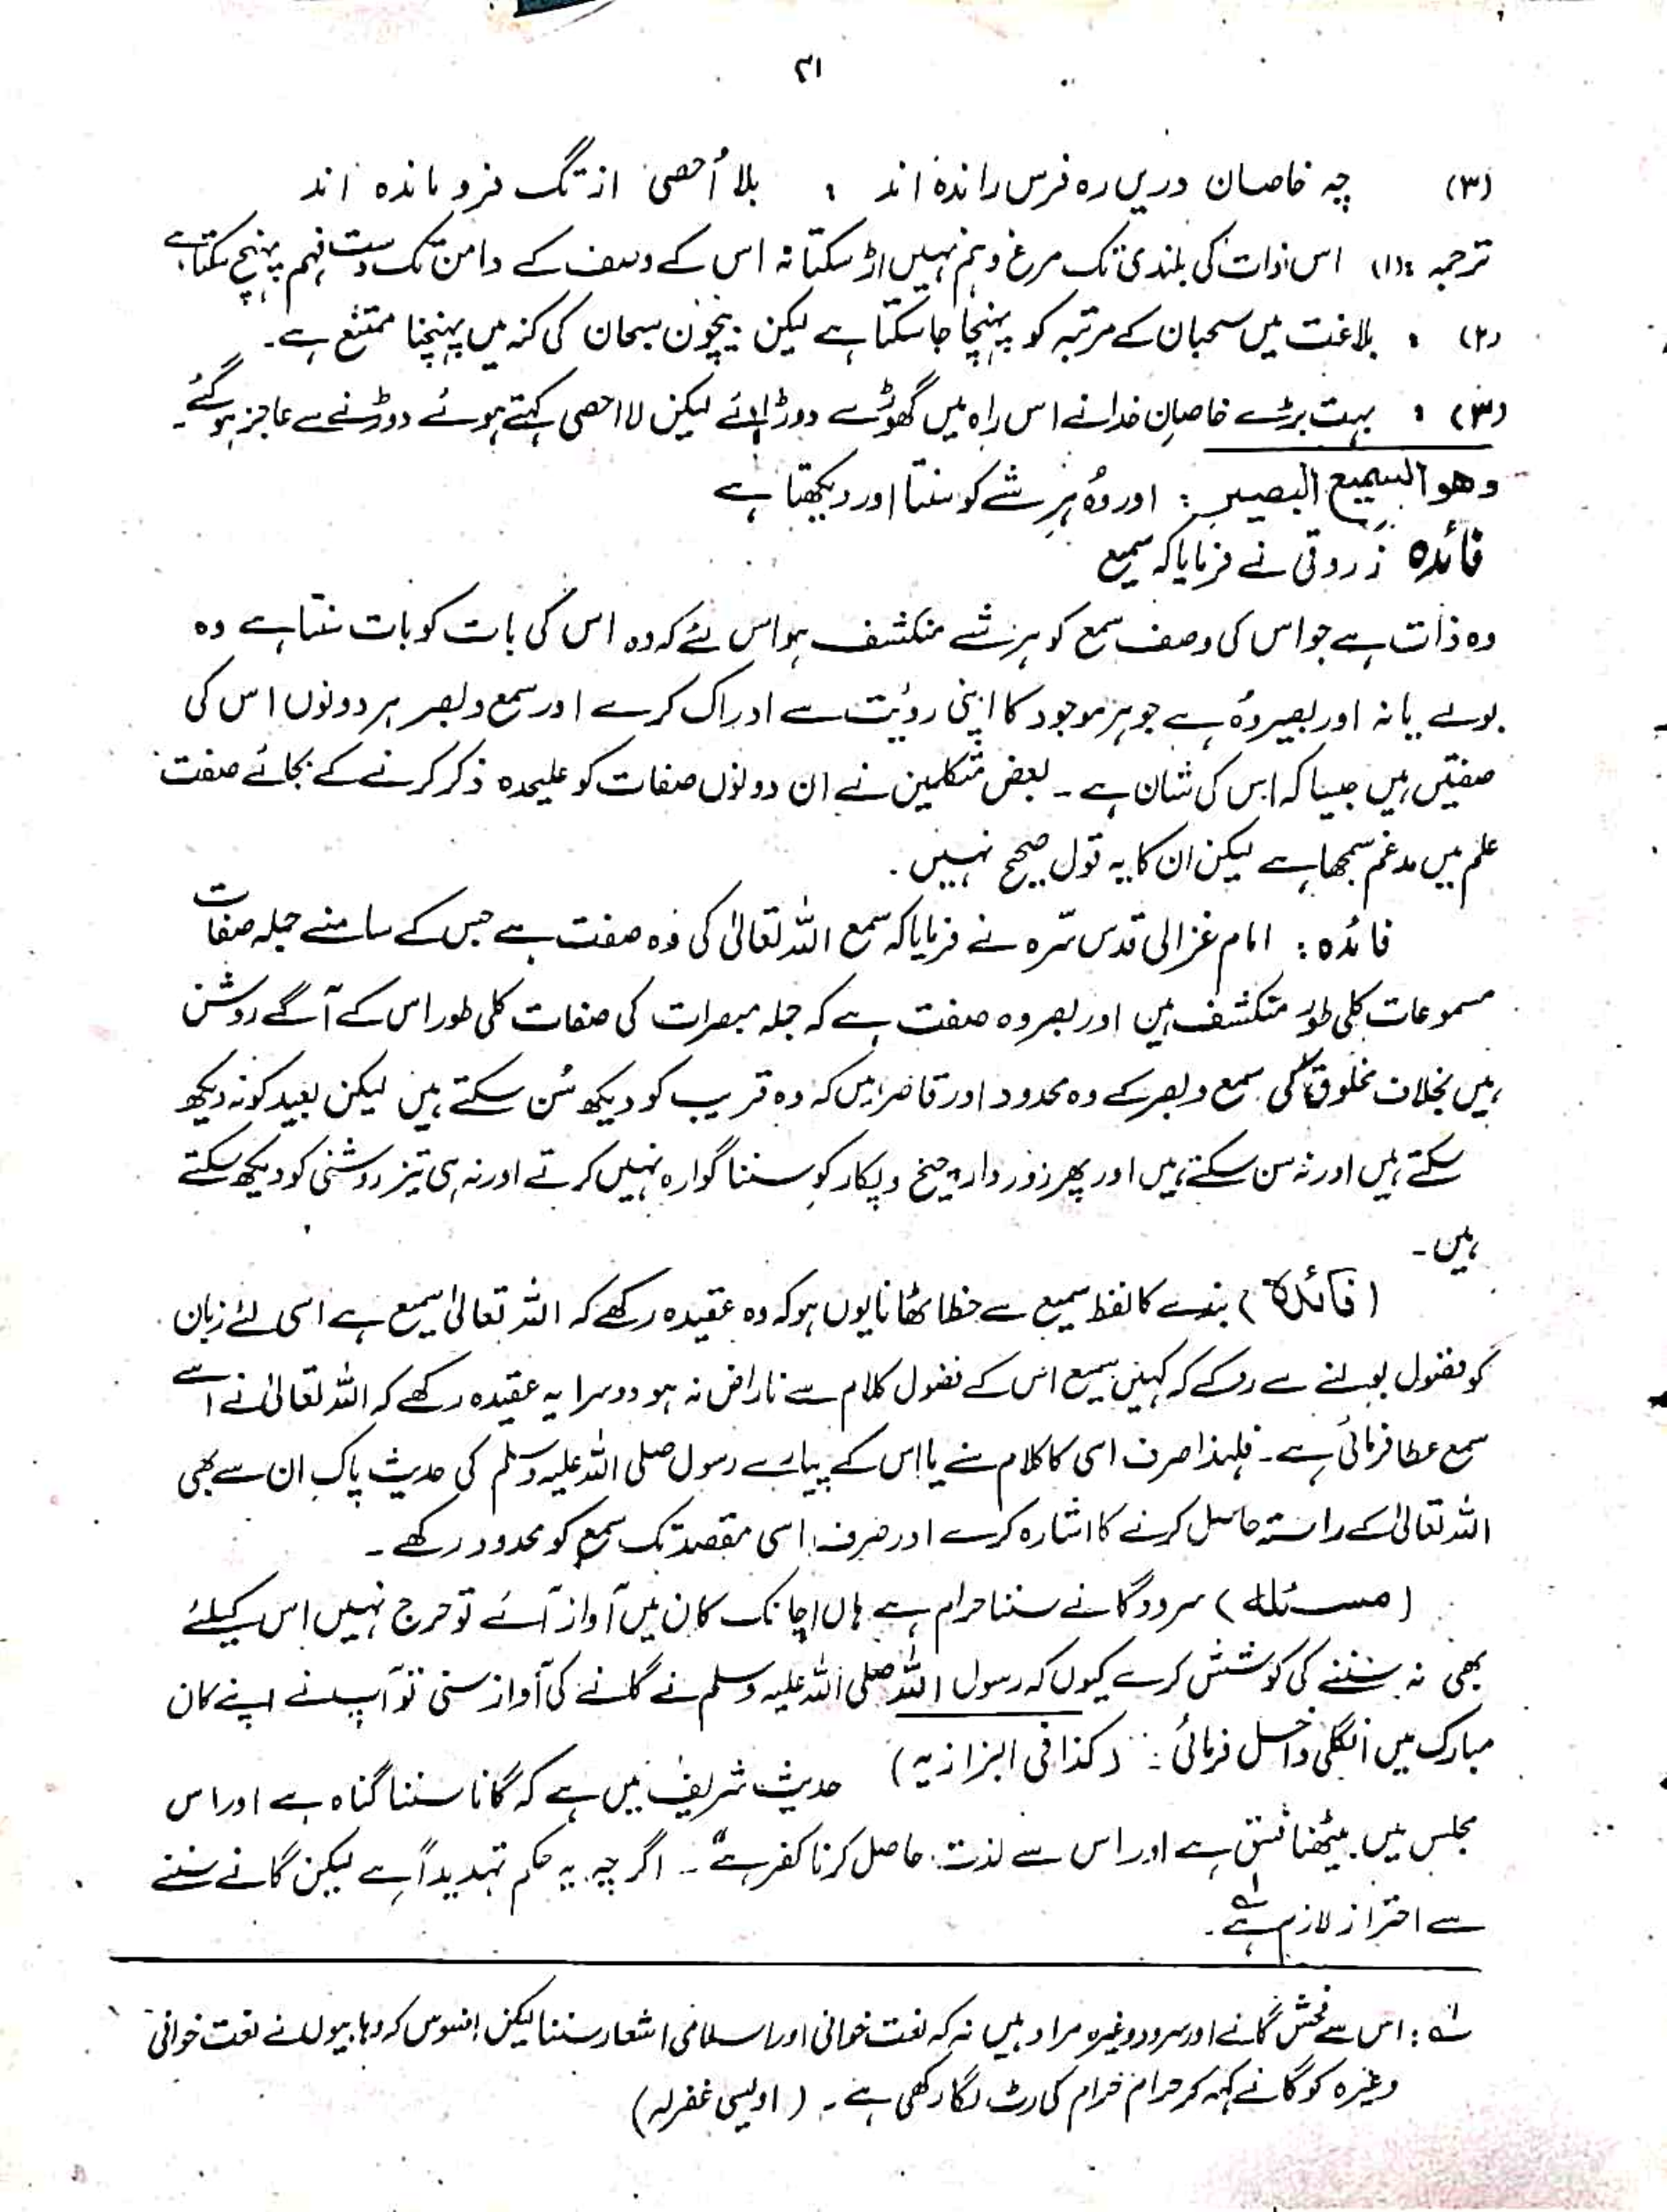 ۲۱
(۳) چہ خاصان دریں رہ فرس راندہ اند ؛ بلا اُحصی از تگ فرو ماندہ اند
ترجمہ :(۱) اس ذات کی بلندی تک مرغ وہم نہیں اڑ سکتا نہ اس کے وصف کے دامن تک دست فہم پہنچ سکتا ہے
(۲) ؛ بلاغت میں سحبان کے مرتبہ کو پہنچا جا سکتا ہے لیکن بیچون سبحان کی کنہ میں پہنچنا ممتنع ہے۔
(۳) ؛ بہت بڑے خاصانِ خدا نے اس راہ میں گھوڑے دوڑائے لیکن لا احصی کہتے ہوئے دوڑنے سے عاجز ہو گئے۔
وهو السميع البصير : اور وہُ ہر شے کو سنتا اور دیکھتا ہے
فائدہ زروقی نے فرمایا کہ سمیع
وہ ذات ہے جو اس کی وصف سمع کو ہر شے منکشف ہو اس لئے کہ وہ اس کی بات کو بات سنتا ہے وہ
بولے یا نہ اور بصیر وہُ ہے جو ہر موجود کا اپنی رویٔت سے ادراک کرے اور سمع و بصر ہر دونوں اس کی
صفتیں ہیں جیسا کہ اس کی شان ہے ۔ بعض متکلمین نے ان دونوں صفات کو علیحدہ ذکر کرنے کے بجائے صفت
علم میں مدغم سمجھا ہے لیکن ان کا یہ قول صحیح نہیں ۔
فائدہ : امام غزالی قدس سّرہ نے فرمایا کہ سمع اللہ تعالیٰ کی وہ صفت ہے جس کے سامنے جملہ صفات
مسموعات کلی طور منکشف ہیں اور بصر وہ صفت ہے کہ جملہ مبصرات کی صفات کلی طور اس کے آگے روشن
ہیں بخلاف مخلوق کی سمع و بصر کے وہ محدود اور قاصر ہیں کہ وہ قریب کو دیکھ سُن سکتے ہیں لیکن بعید کو نہ دیکھ
سکتے ہیں اور نہ سن سکتے ہیں اور پھر زور دار چیخ و پکار کو سننا گوارہ نہیں کرتے اور نہ ہی تیز روشنی کو دیکھ سکتے
ہیں ۔
(فائدہ) بندے کا لفظ سمیع سے حظ اٹھانا یوں ہو کہ وہ عقیدہ رکھے کہ اللہ تعالیٰ سمیع ہے اسی لئے زبان
کو فضول بولنے سے روکے کہ کہیں سمیع اس کے فضول کلام سے ناراض نہ ہو دوسرا یہ عقیدہ رکھے کہ اللہ تعالیٰ نے اسے
سمع عطا فرمائی ہے ۔ فلہذا صرف اسی کا کلام سنے یا اس کے پیارے رسول صلی اللہ علیہ وسلم کی حدیث پاک ان سے بھی
اللہ تعالیٰ کے راستہ حاصل کرنے کا اشارہ کرے اور صرف اسی مقصد تک سمع کو محدود رکھے ۔
(مسئلہ) سرود گانے سننا حرام ہے ہاں اچانک کان میں آواز آئے تو حرج نہیں اس کیلئے
بھی نہ سننے کی کوشش کرے کیوں کہ رسول اللہ صلی اللہ علیہ وسلم نے گانے کی آواز سنی تو آپ نے اپنے کان
مبارک میں انگلی داخل فرمائی : (کذا فی البزازیہ) حدیث شریف میں ہے کہ گانا سننا گناہ ہے اور اس
مجلس میں بیٹھنا فسق ہے اور اس سے لذت حاصل کرنا کفر ہے ۔ اگر چہ یہ حکم تہدیداً ہے لیکن گانے سننے
سے احتراز لازم ہے ۱ ۔
۱ : اس سے فحش گانے اور سرود وغیرہ مراد ہیں نہ کہ نعت خوانی اور اسلامی اشعار سننا لیکن افسوس کہ وہابیوں نے نعت خوانی
وغیرہ کو گانے کہہ کر حرام حرام کی رٹ لگا رکھی ہے ۔ (اویسی غفرلہ)